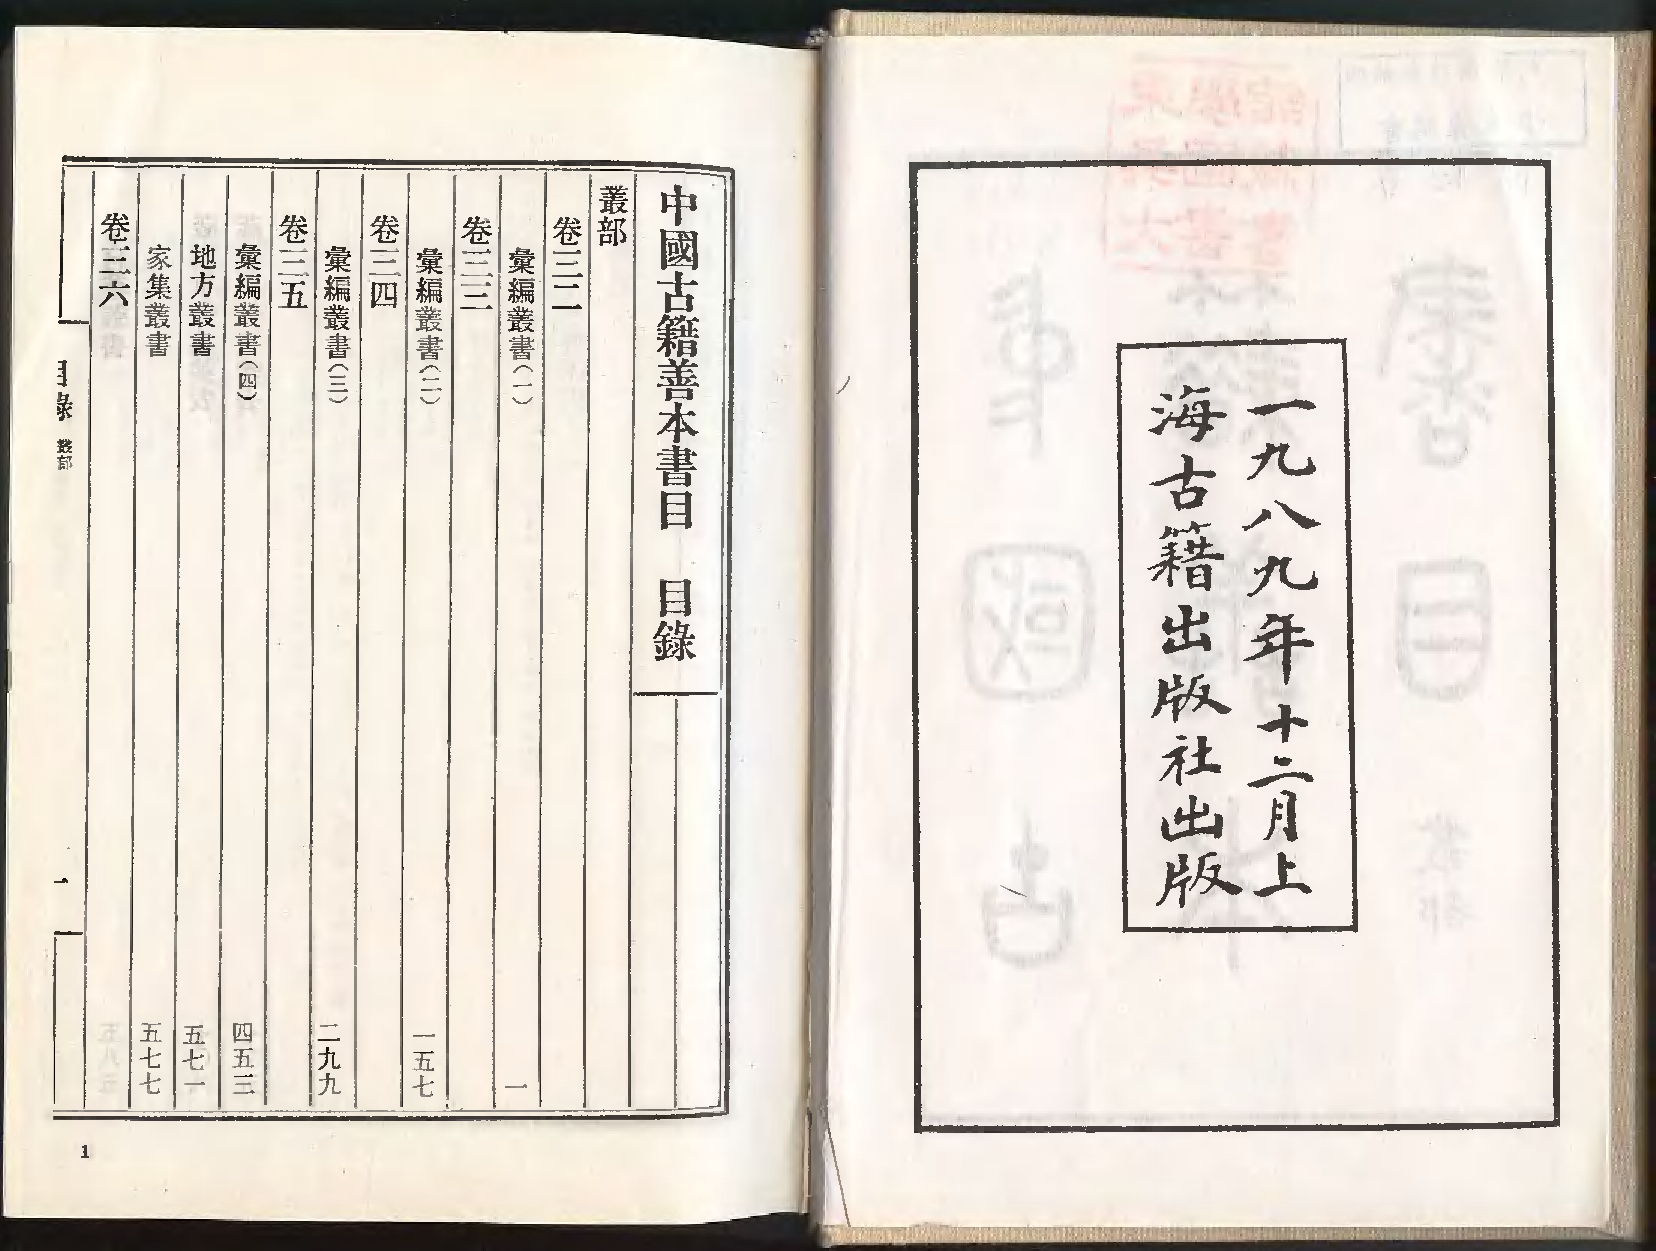 一九八九年十二月上
海古籍出版社出版
中國古籍善本書目　目錄
叢部
卷三二
彙編叢書(一)　一
卷三三
彙編叢書(二)　一五七
卷三四
彙編叢書(三)　二九九
卷三五
彙編叢書(四)　四五三
地方叢書　五七一
家集叢書　五七七
卷三六
目錄　叢部　一
1